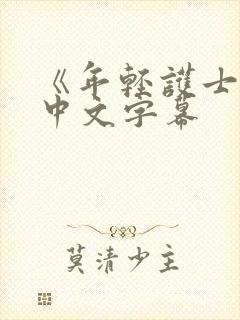 《年轻護士
中文字幕
莫清少主